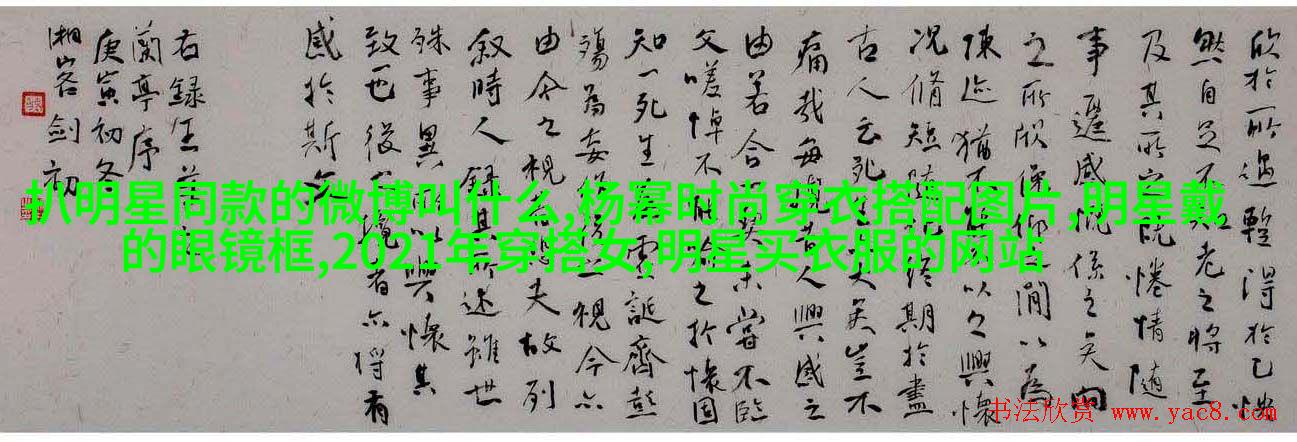 欣於所遇暫得於己快
然自足不知老之將至
及其所之既倦情隨
事遷感慨係之矣向
之所欣俛仰之間以為
陳迹猶不以之興懷
況脩短隨終期於盡
古人云死大矣豈不
痛哉每覽昔人興感之
由若合契未嘗不臨
文嗟悼不能喻之於懷固
知一死生虛誕齊彭
殤為妄後之視今亦
由今之視夫故列
敘時人錄其所述雖世
殊事異所以興懷其
致一也後之覽者亦將有
感於斯文
右録王
蘭亭序
庚寅初冬
湘客劍初
扒明星同款的微博叫什么,杨幂时尚穿衣搭配图片,明星戴
的眼镜框,2021年穿搭女,明星买衣服的网站
书法欣赏 www.yac8.com